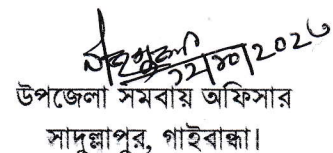 ১২/১০/২০২৩
উপজেলা সমবায় অফিসার
সাদুল্লাপুর, গাইবান্ধা।